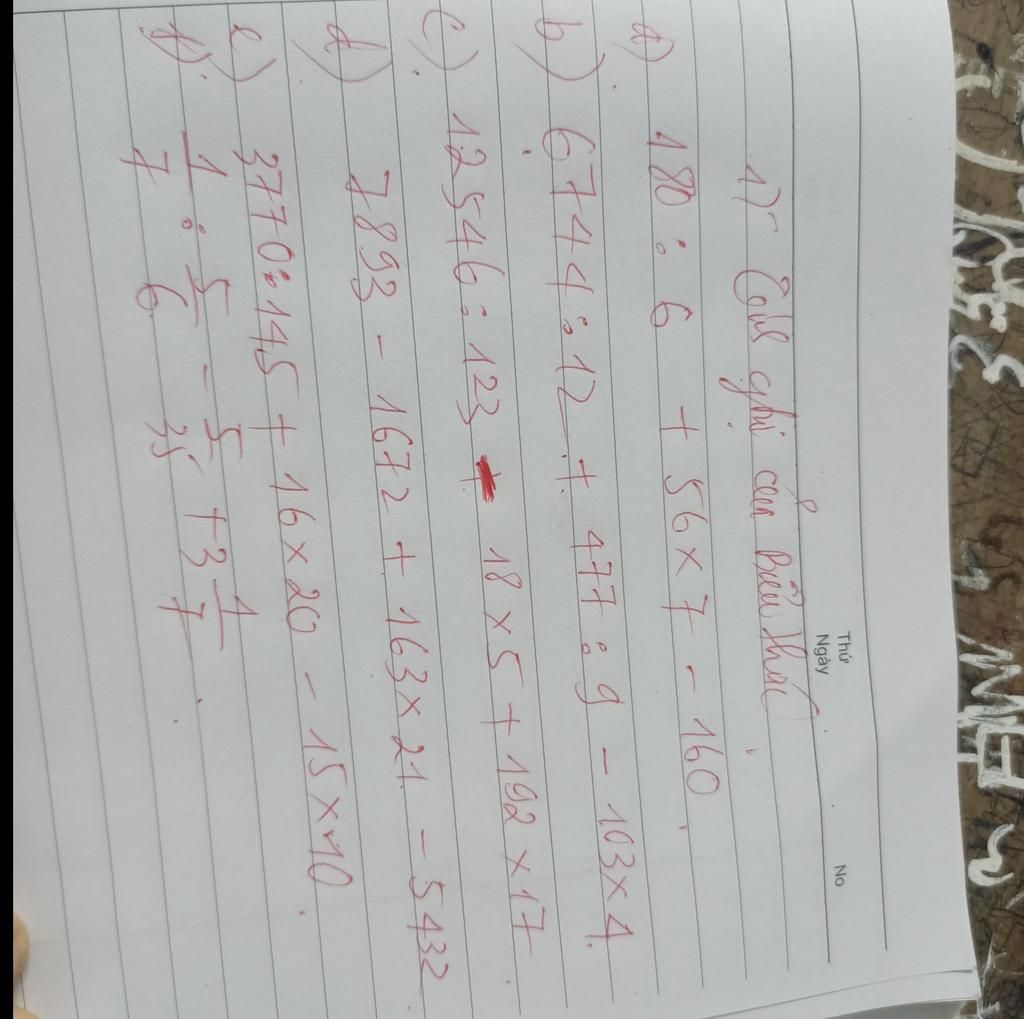 Thứ
Ngày
No
1) Tính giá trị biểu thức
a) 180 : 6 + 56 x 7 - 160
b) 6744 : 12 + 477 : 9 - 103 x 4
c) 12546 : 123 + 18 x 5 + 192 x 17
d) 7893 - 1672 + 163 x 21 - 5432
e) 3770 : 145 + 16 x 20 - 15 x 10
f) 1/7 : 5/6 - 5/35 + 3 1/7